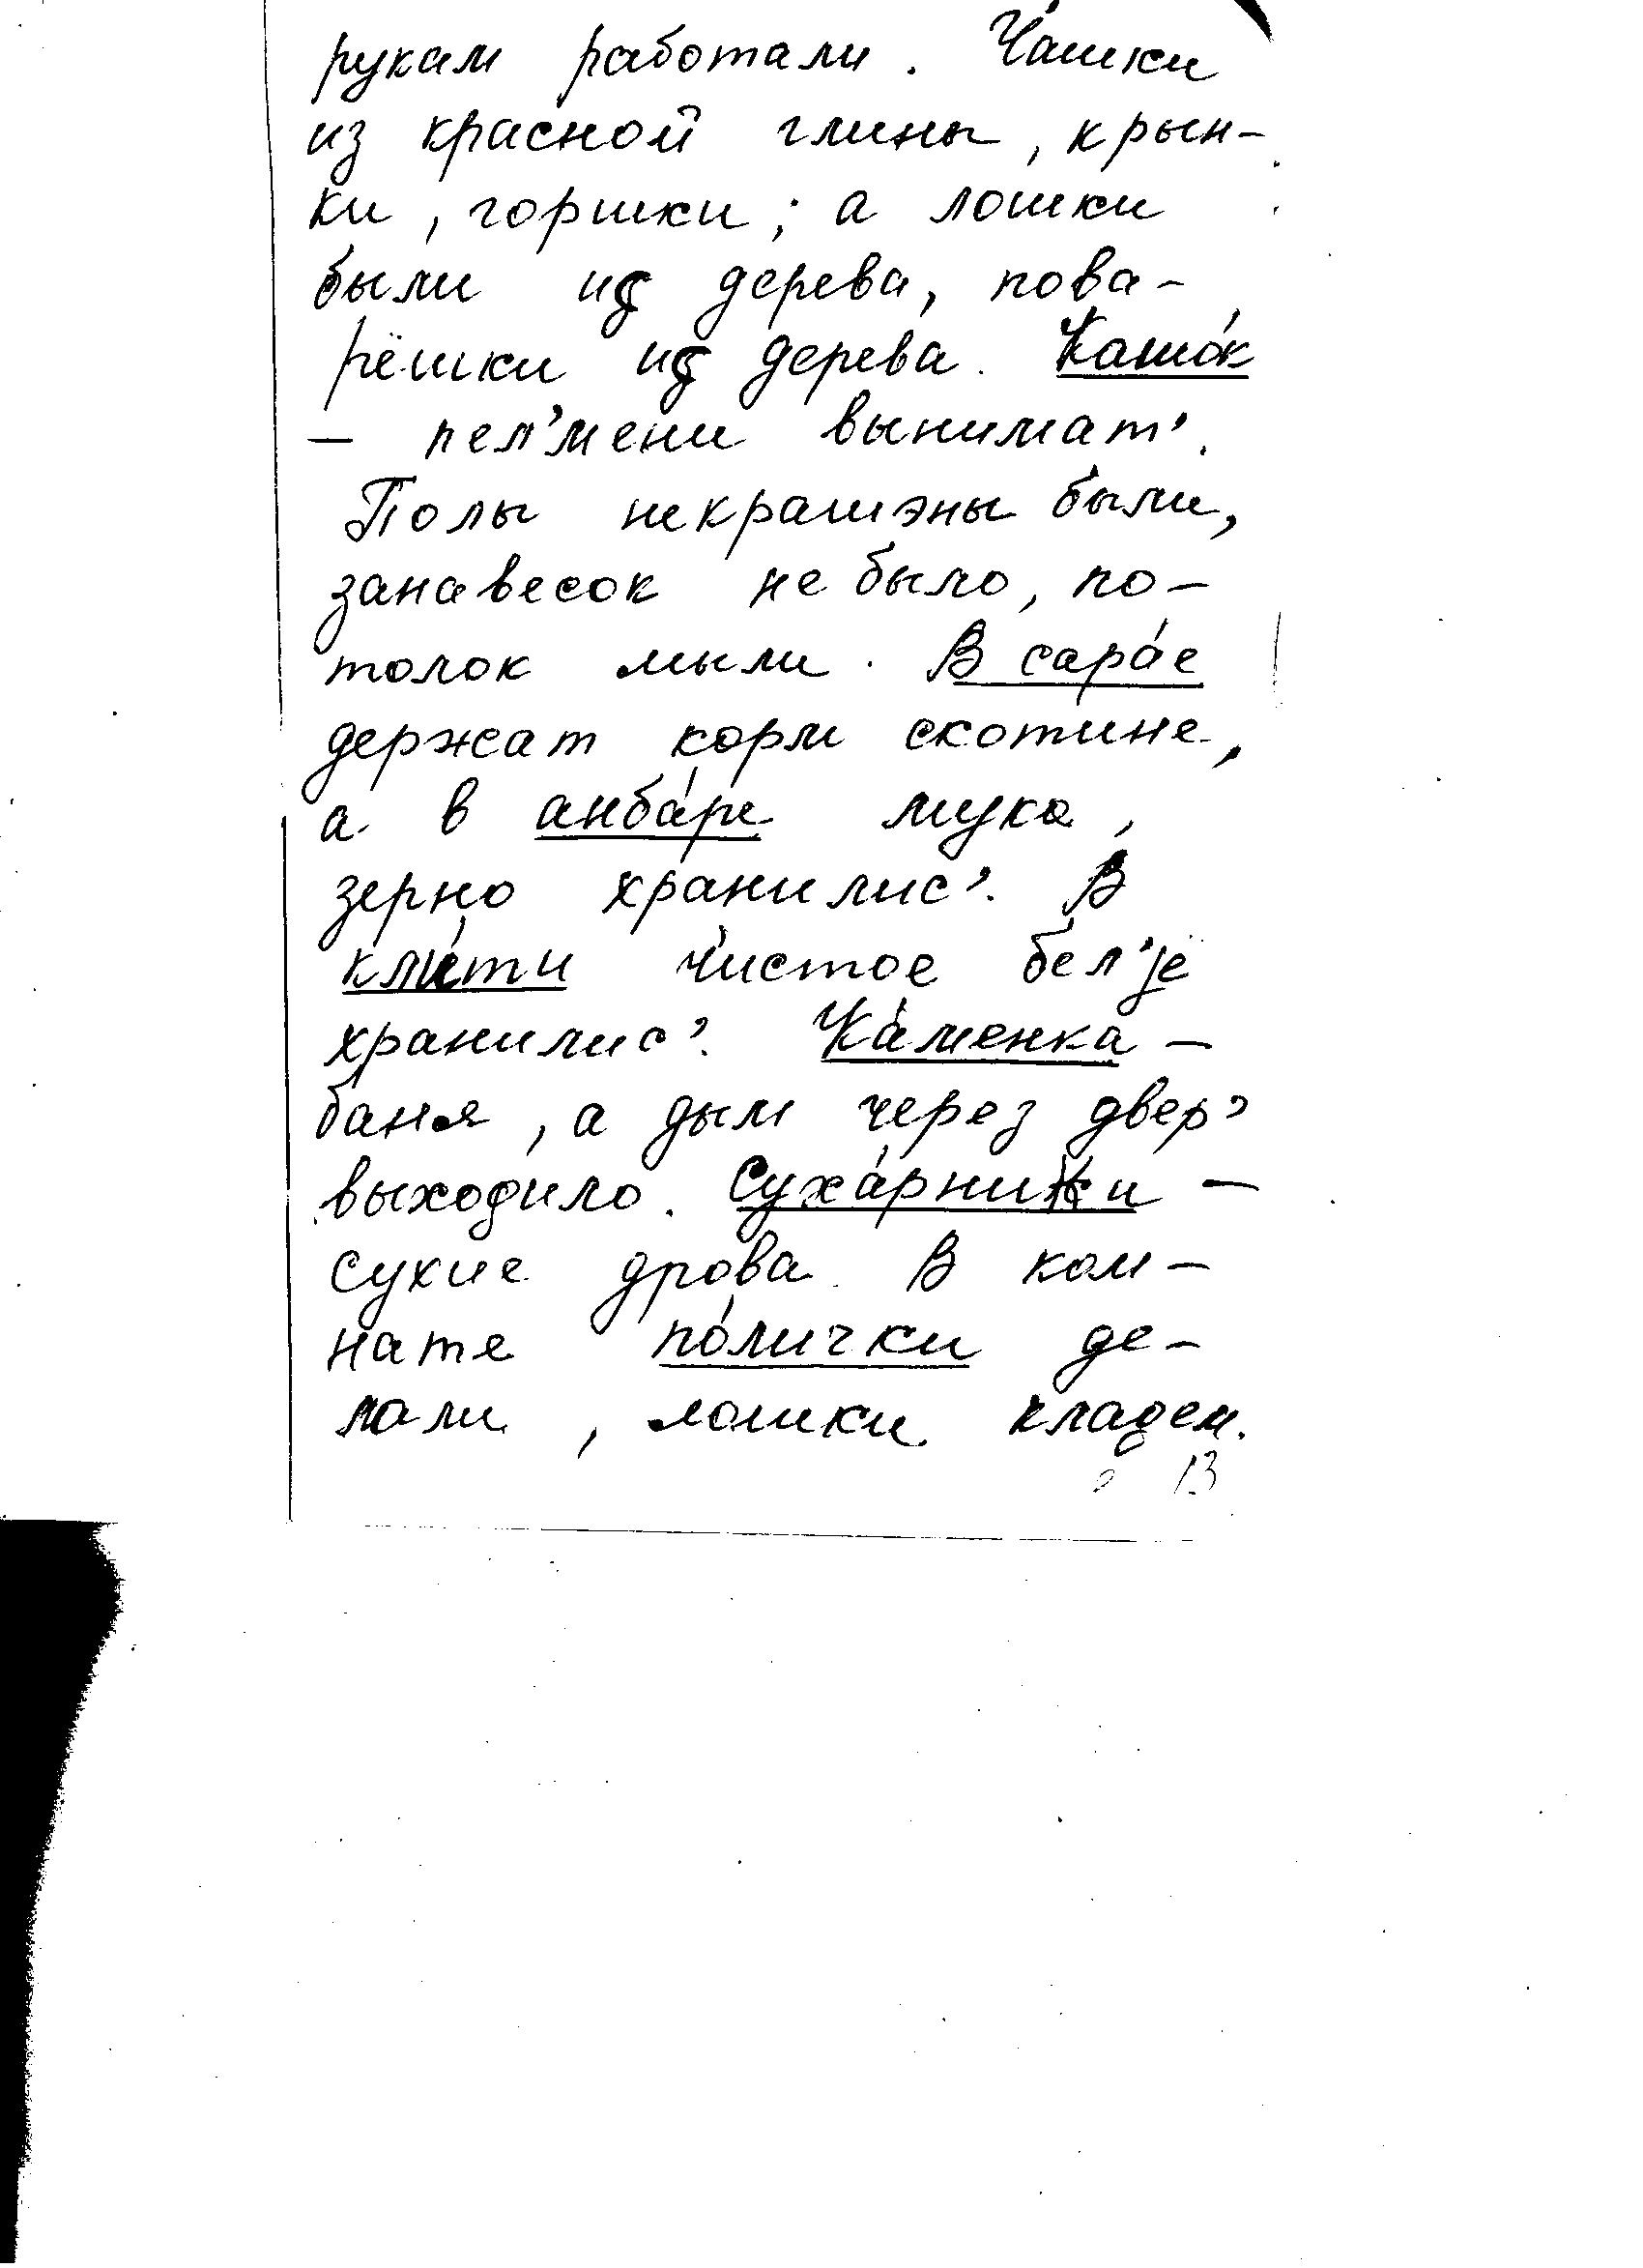 рукам работали. Чашки
из красной глины, крын-
ки, горшки; а лошки
были из дерева, пова-
рёшки из дерева. Кашо́к
– пел'мени вынимат'.
Полы некрашэны были,
занавесок не было, по-
толок мыли. В сара́е
держат корм скотине,
а в анба́ре мука,
зерно хранилис'. В
кли́ти чистое бел'jё
хранилис'. Ка́менка –
баня, а дым через двер'
выходило. Суха́рники –
сухие дрова. В ком-
нате по́лички де-
лали, лошки кладем.
13